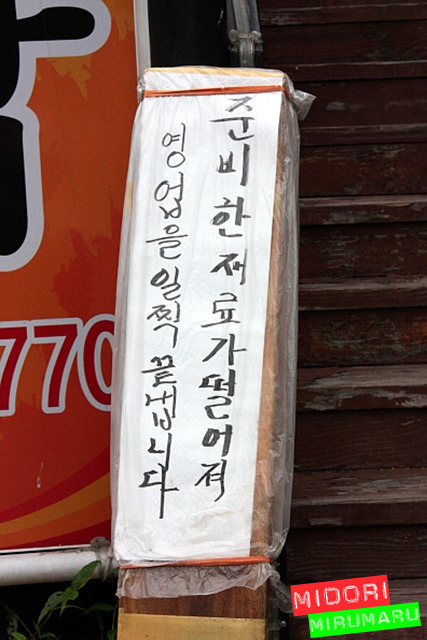 준비한 재료가 떨어져
영업을 일찍 끝냅니다
770
MIDORI
MIRUMARU